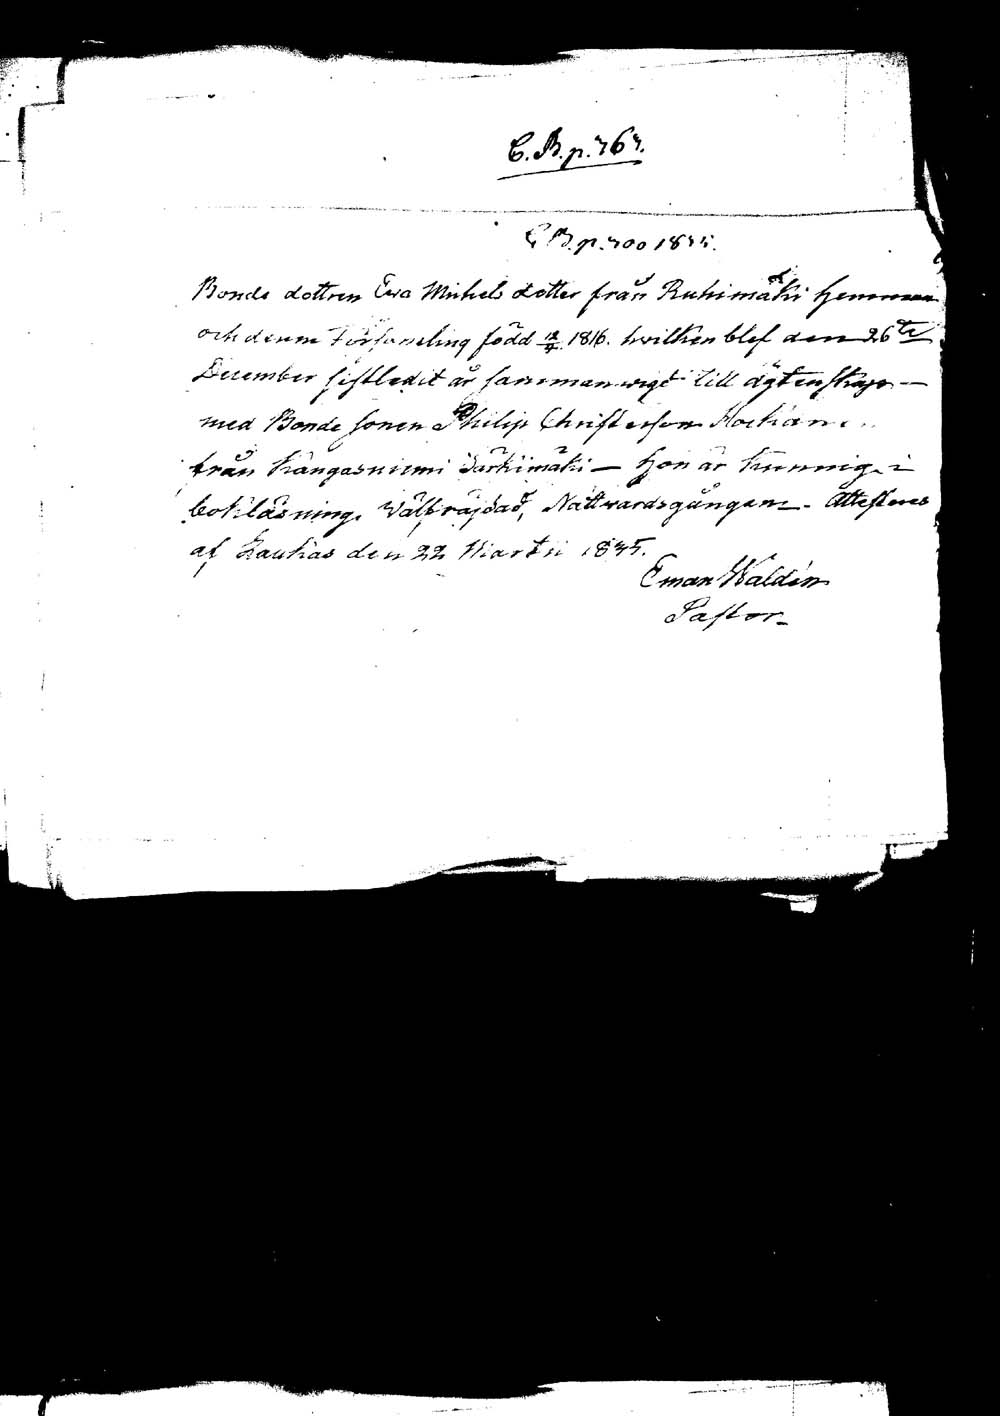 C.B.p. 767.
C.B.p. 700 1835.
Bonde dottren Ewa Michels dotter från Ruhimäki hemman
och denna Församling född 12/4 1816. hvilken blef den 26te
December sistledit år sammanwigt till ägtenskap —
med Bonde sonen Philip Christerson
från Kangasniemi Särkimäki — Hon är kunnig i
bokläsning, Wälfräjdad, Nattwardsgången. Attesteras
af Haukas den 22 Martii 1835.
Eman Waldén
Pastor